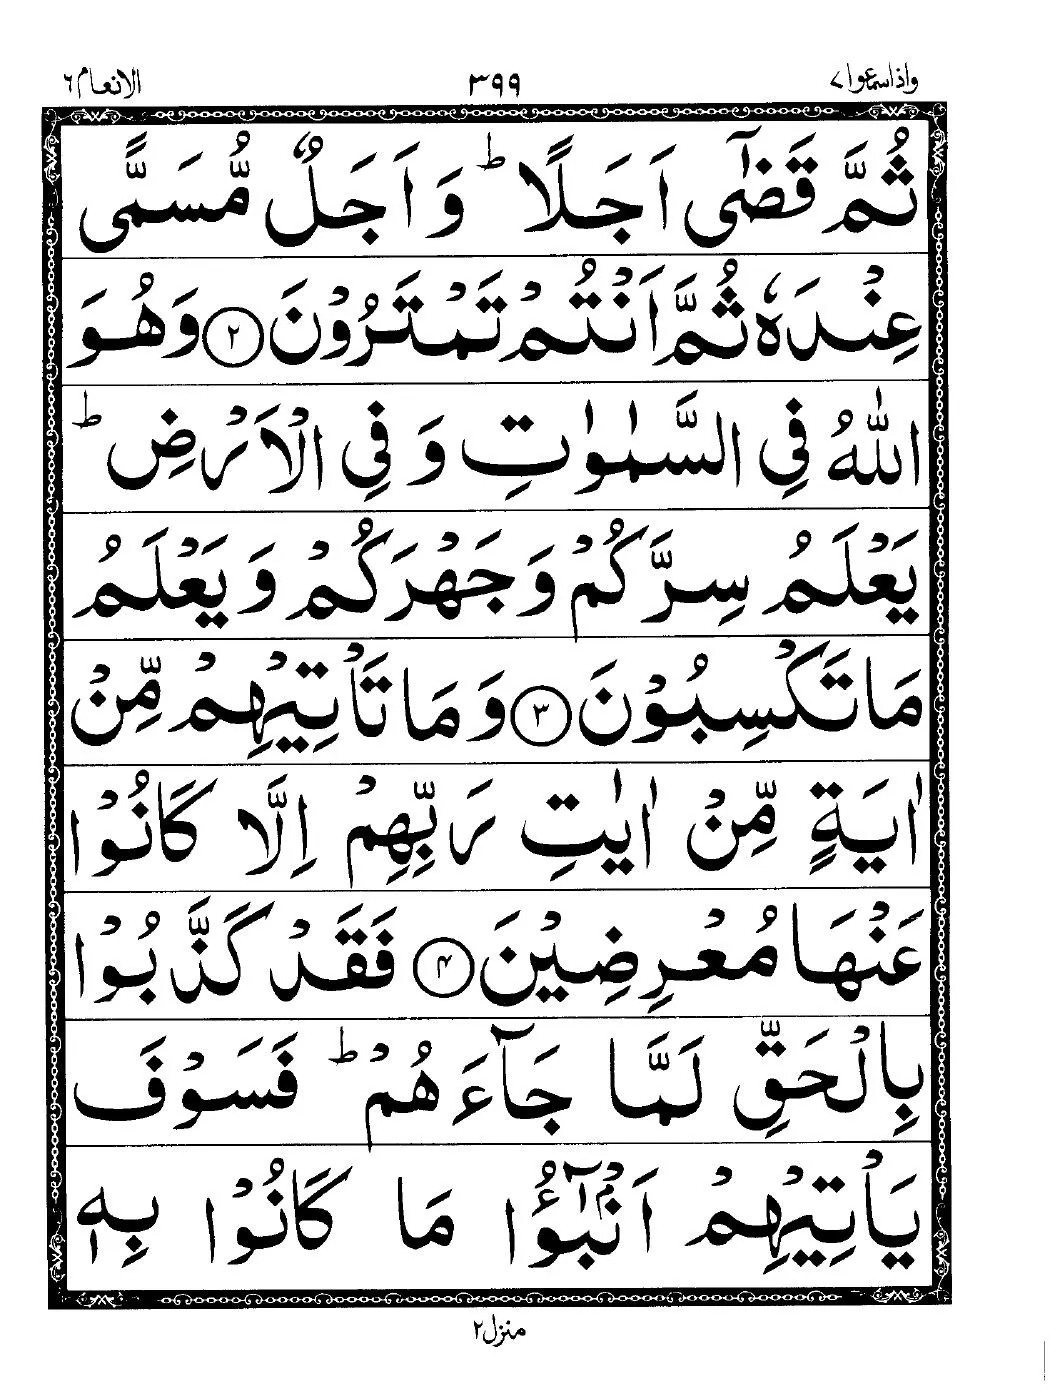 واذاسمعوا۷ ۳۹۹ الانعام۶
ثُمَّ قَضٰۤى اَجَلًا ؕ وَ اَجَلٌ مُّسَمًّى
عِنْدَهٗ ثُمَّ اَنْتُمْ تَمْتَرُوْنَ ﴿۲﴾ وَ هُوَ
اللّٰهُ فِی السَّمٰوٰتِ وَ فِی الْاَرْضِ ؕ
یَعْلَمُ سِرَّكُمْ وَ جَهْرَكُمْ وَ یَعْلَمُ
مَا تَكْسِبُوْنَ ﴿۳﴾ وَ مَا تَاْتِیْهِمْ مِّنْ
اٰیَةٍ مِّنْ اٰیٰتِ رَبِّهِمْ اِلَّا كَانُوْا
عَنْهَا مُعْرِضِیْنَ ﴿۴﴾ فَقَدْ كَذَّبُوْا
بِالْحَقِّ لَمَّا جَآءَهُمْ ؕ فَسَوْفَ
یَاْتِیْهِمْ اَنْۢبٰٓؤُا مَا كَانُوْا بِهٖ
منزل۲